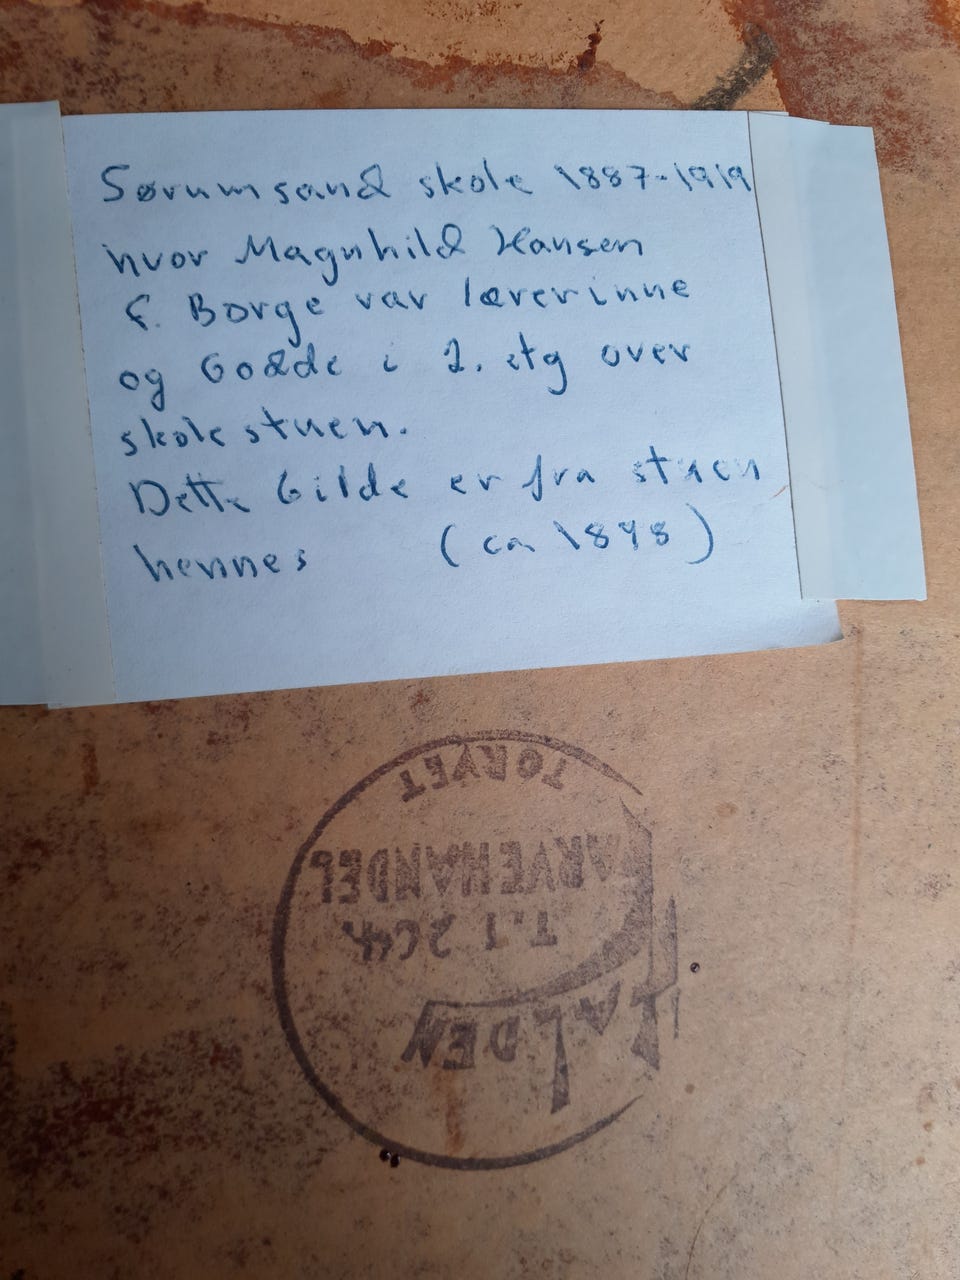 Sørumsand skole 1887-1919
hvor Magnhild Hansen
f. Borge var lærerinne
og bodde i 2. etg over
skolestuen.
Dette bilde er fra stuen
hennes (ca 1898)
HALDEN
FARVEHANDEL
TORVET